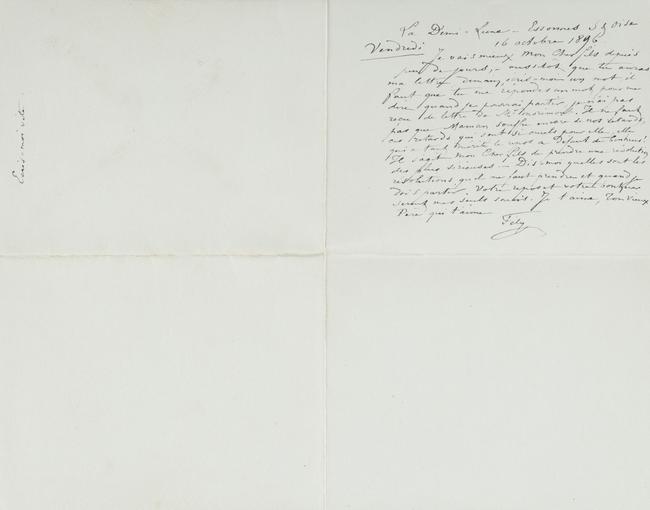 La Demi-Lune - Essonnes S & Oise
16 octobre 1896
Vendredi
Je vais mieux mon Cher fils depuis
peu de jours, - aussitôt que tu auras
ma lettre demain, écris-moi un mot il
faut que tu me répondes un mot pour me
dire quand je pourrai partir je n'ai pas
reçu de lettre de Mr
pas que Maman souffre encore de nos retards,
ces retards qui sont si cruels pour elle, elle
qui a tant mérité le repos à défaut de bonheur!
Il s'agit mon Cher fils de prendre une résolution
des plus sérieuses - Dis-moi quelles sont les
résolutions qu'il me faut prendre et quand je
dois partir. Votre repos et votre bonheur
seront mes seuls soucis. Je t'aime, Ton vieux
Père qui t'aime
Fély
Ecris-moi vite